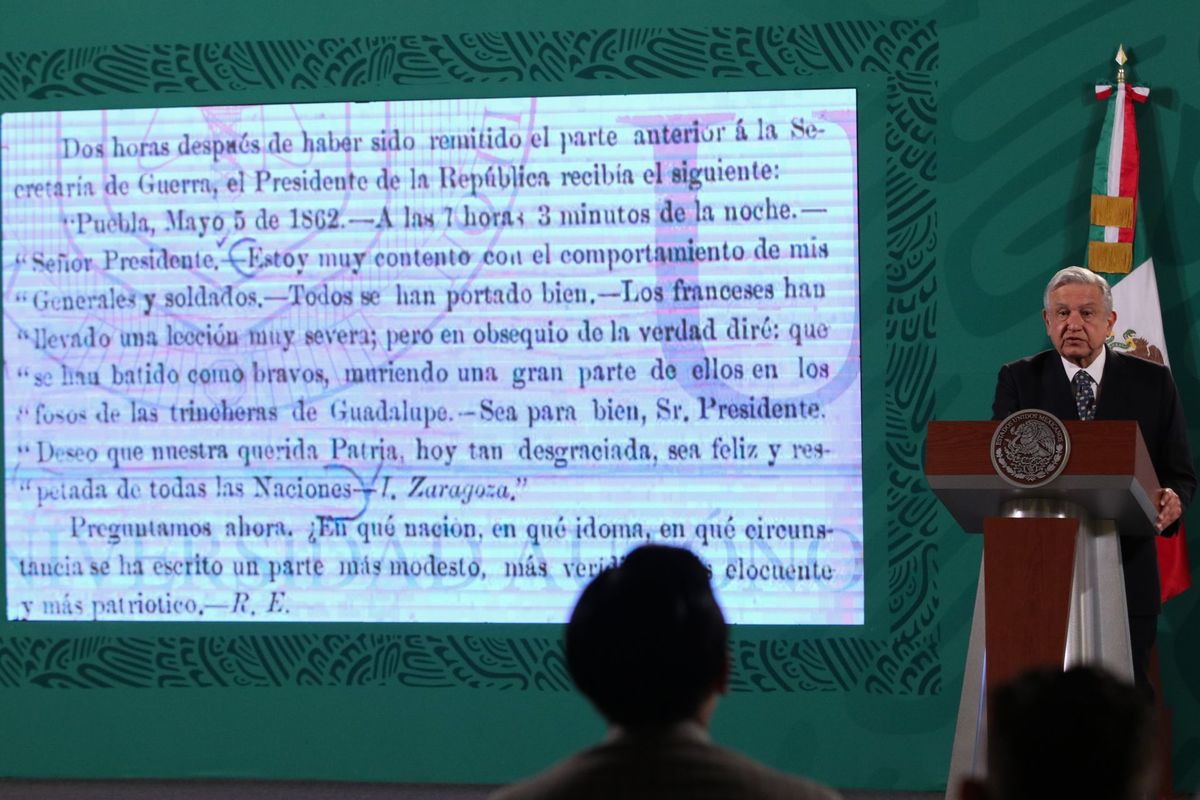 Dos horas después de haber sido remitido el parte anterior á la Se-
cretaría de Guerra, el Presidente de la República recibía el siguiente:
"Puebla, Mayo 5 de 1862.—A las 7 horas 3 minutos de la noche.—
"Señor Presidente.—Estoy muy contento con el comportamiento de mis
"Generales y soldados.—Todos se han portado bien.—Los franceses han
"llevado una lección muy severa; pero en obsequio de la verdad diré: que
"se han batido como bravos, muriendo una gran parte de ellos en los
"fosos de las trincheras de Guadalupe.—Sea para bien, Sr. Presidente.
"Deseo que nuestra querida Patria, hoy tan desgraciada, sea feliz y res-
"petada de todas las Naciones—I. Zaragoza."
Preguntamos ahora. ¿En qué nación, en qué idoma, en qué circuns-
tancia se ha escrito un parte más modesto, más elocuente
y más patriotico.—R. E.